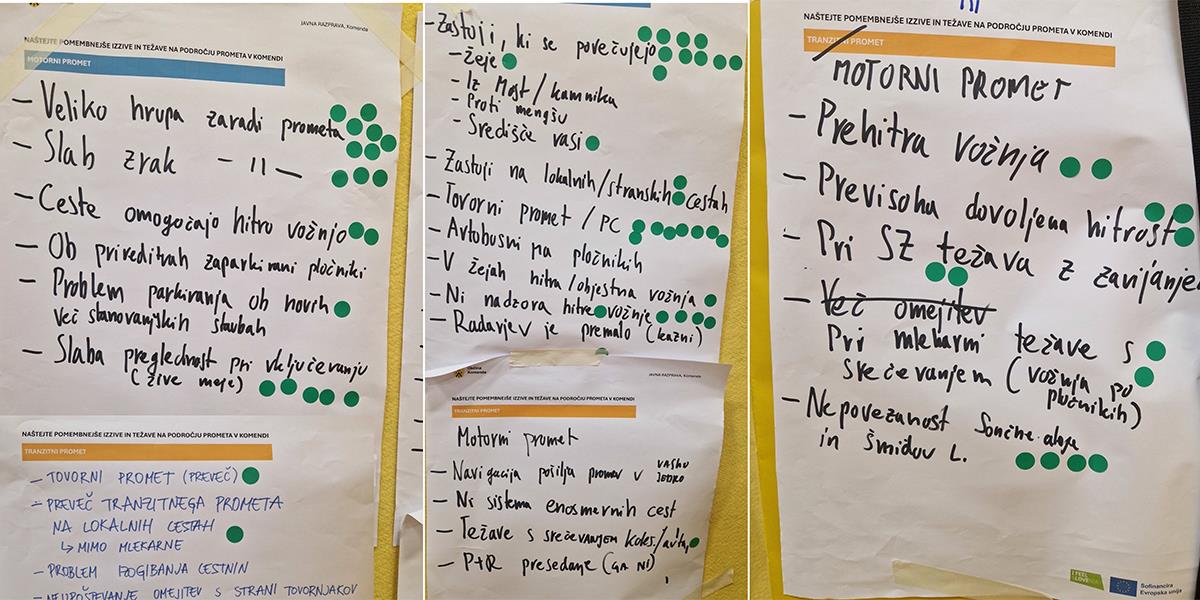 JAVNA RAZPRAVA, Komenda
NAŠTEJTE POMEMBNEJŠE IZZIVE IN TEŽAVE NA PODROČJU PROMETA V KOMENDI
MOTORNI PROMET
- Veliko hrupa zaradi prometa
- Slab zrak - 11 -
- Ceste omogočajo hitro vožnjo
- Ob prireditvah zaparkirani pločniki
- Problem parkiranja ob novih
več stanovanjskih stavbah
- Slaba preglednost pri vključevanju
(žive meje)
NAŠTEJTE POMEMBNEJŠE IZZIVE IN TEŽAVE NA PODROČJU PROMETA V KOMENDI
TRANZITNI PROMET
- TOVORNI PROMET (PREVEČ)
- PREVEČ TRANZITNEGA PROMETA
NA LOKALNIH CESTAH
↳ MIMO MLEKARNE
- PROBLEM IZOGIBANJA CESTNIN
- NEUPOŠTEVANJE OMEJITEV S STRANI TOVORNJAKOV
- Zastoji, ki se povečujejo
- Žeje
- Iz Most/kamnika
- Proti mengšu
- Središče vasi
- Zastoji na lokalnih/stranskih cestah
- Tovorni promet / PC
- Avtobusni na pločnikih
- V žejah hitra/objestna vožnja
- Ni nadzora hitre vožnje
- Radarjev je premalo (kazni)
Občina
Komenda
JAVNA RAZPRAVA, Komenda
NAŠTEJTE POMEMBNEJŠE IZZIVE IN TEŽAVE NA PODROČJU PROMETA V KOMENDI
TRANZITNI PROMET
Motorni promet
- Navigacija pošilja promet v vaško
jedro
- Ni sistema enosmernih cest
- Težave s srečevanjem koles./avtov
- P+R presedanje (ga ni)
NAŠTEJTE POMEMBNEJŠE IZZIVE IN TEŽAVE NA PODROČJU PROMETA V KOMENDI
TRANZITNI PROMET
MOTORNI PROMET
- Prehitra vožnja
- Previsoka dovoljena hitrost
- Pri SZ težava z zavijanjem
- Več omejitev
Pri mlekarni težave s
srečevanjem (vožnja po
pločnikih)
- Nepovezanost Sončne aleje
in Šmidov L.
I FEEL
SLOVENIA
Sofinancira
Evropska unija